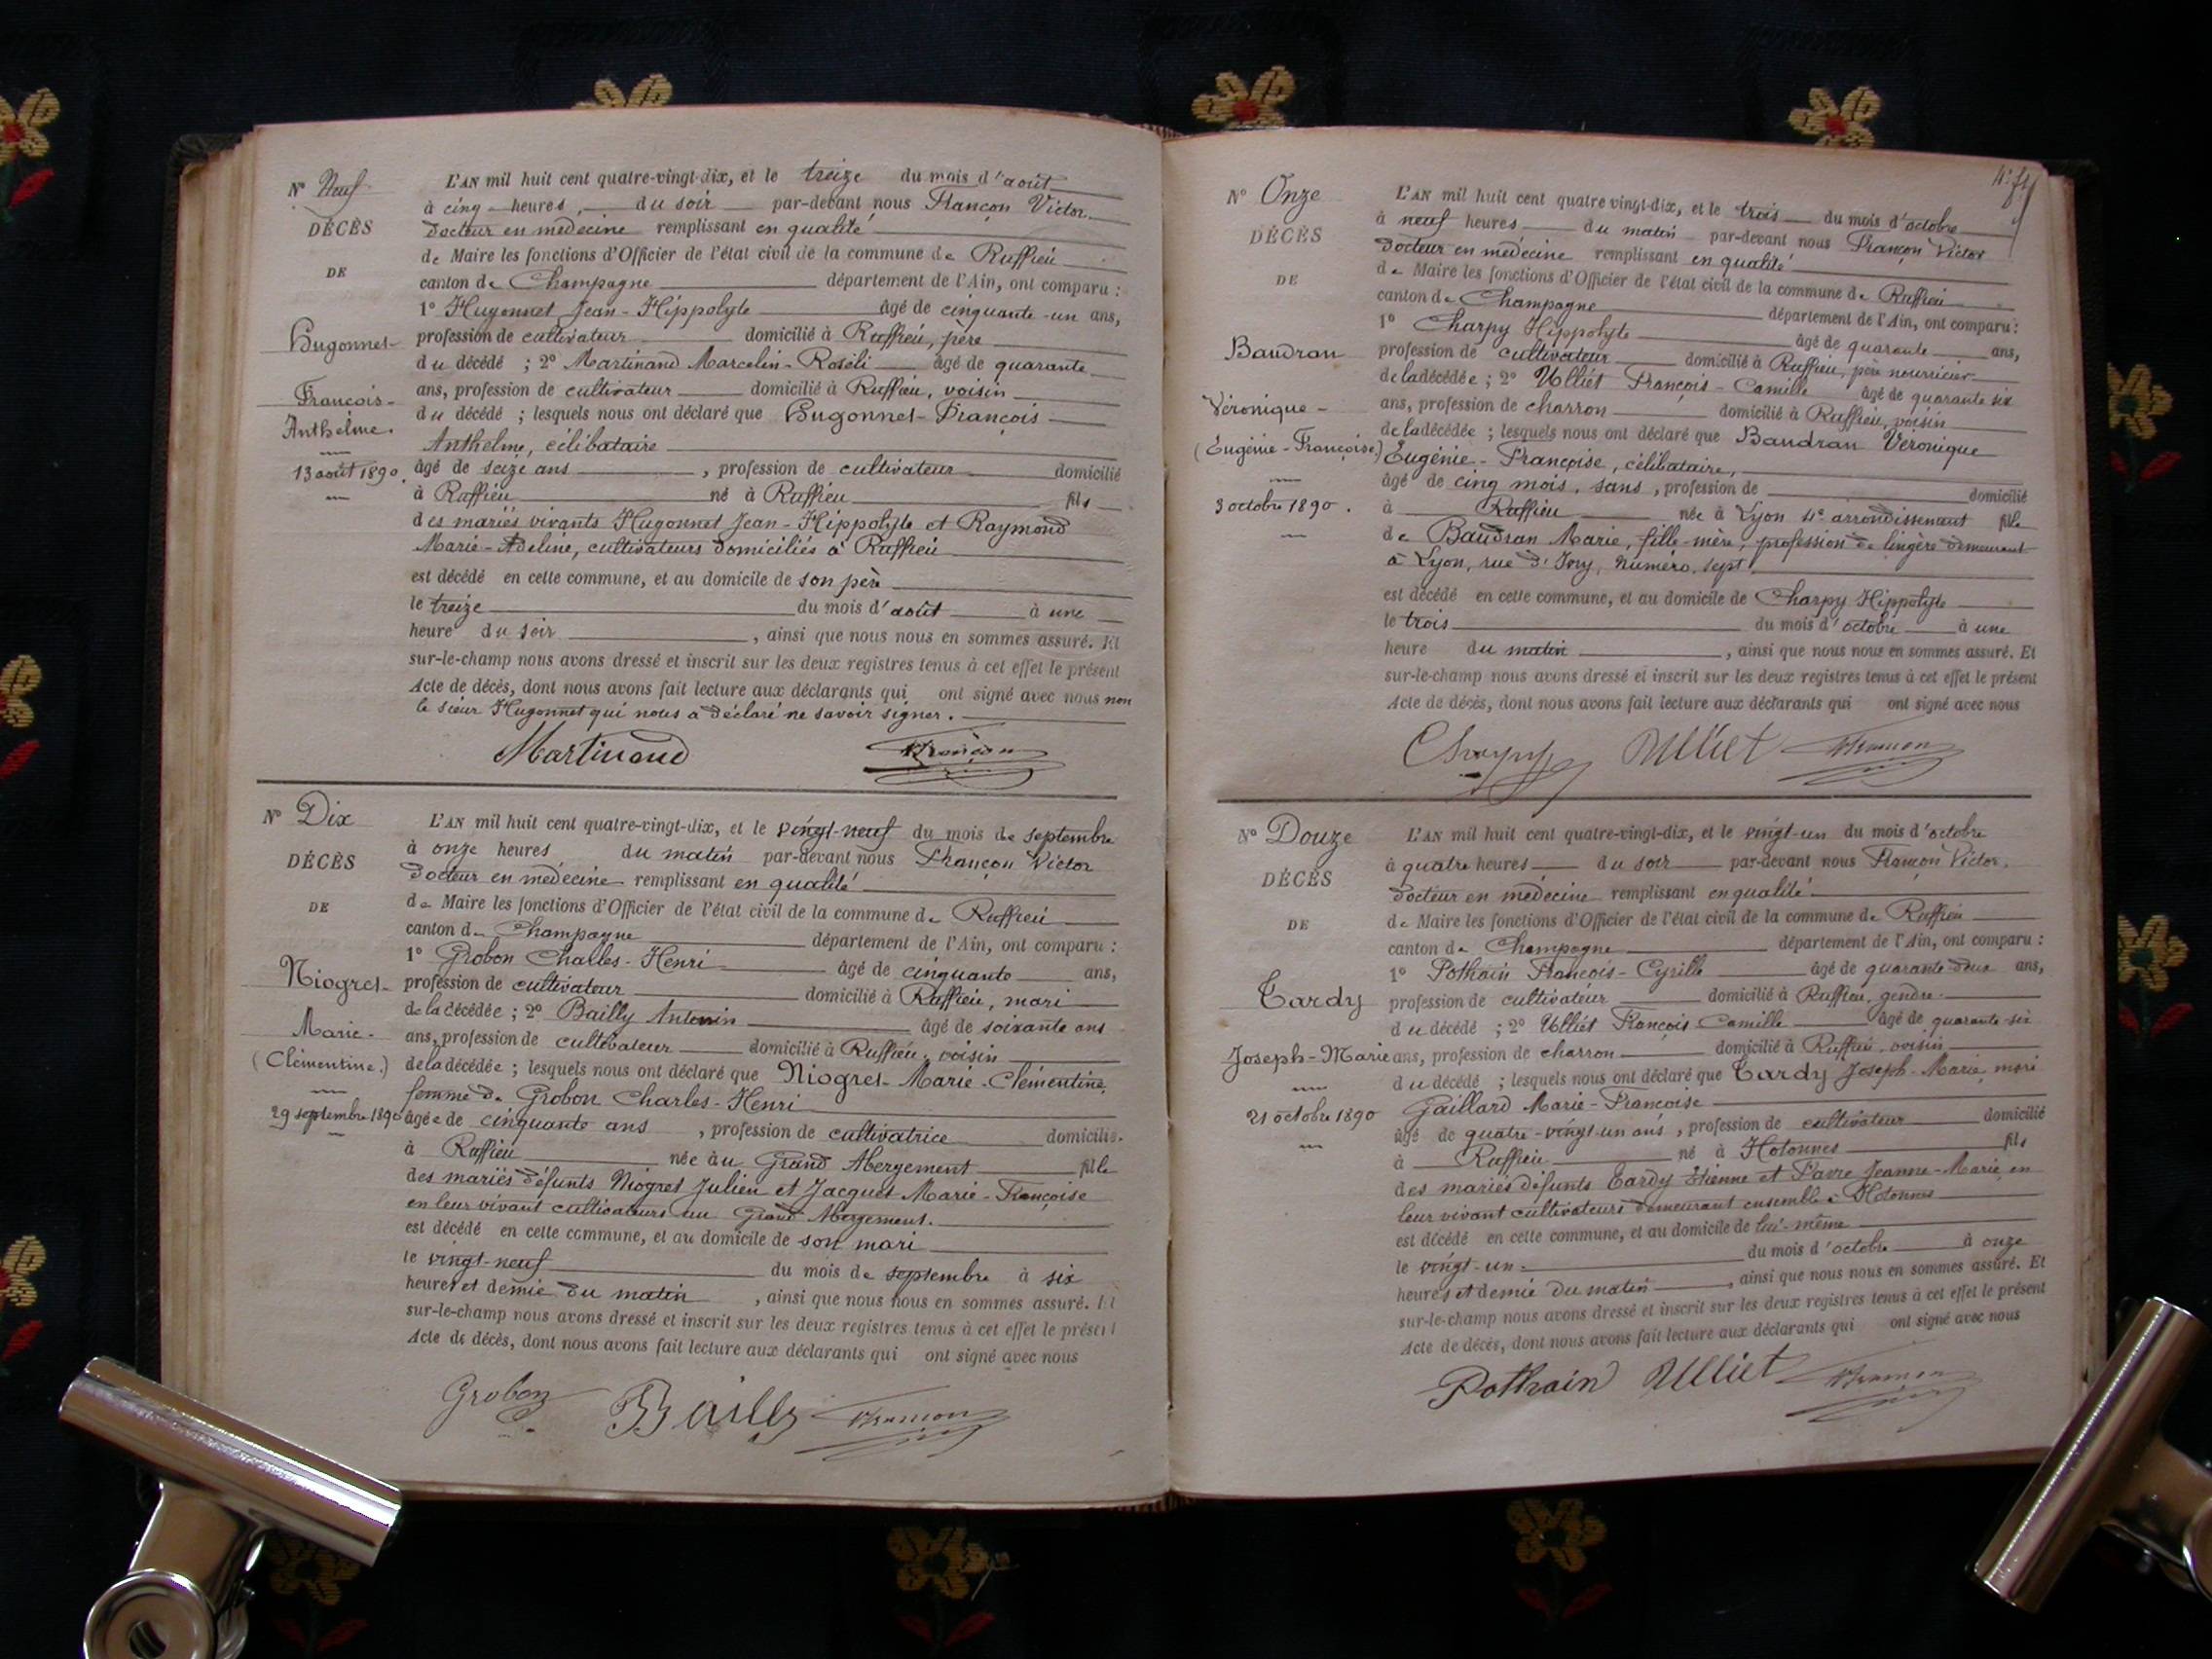 N° Neuf
DÉCÈS
DE
Hugonnet
François-
Anthelme.
13 août 1890.
L'AN mil huit cent quatre-vingt-dix, et le treize du mois d'août
à cinq heures, du soir par-devant nous Françon Victor
docteur en médecine remplissant en qualité
de Maire les fonctions d'Officier de l'état civil de la commune de Ruffieu
canton de Champagne département de l'Ain, ont comparu :
1° Hugonnet Jean-Hippolyte âgé de cinquante-un ans,
profession de cultivateur domicilié à Ruffieu, père
du décédé ; 2° Martinand Marcelin-Roséli âgé de quarante
ans, profession de cultivateur domicilié à Ruffieu, voisin
du décédé ; lesquels nous ont déclaré que Hugonnet François
Anthelme, célibataire
âgé de seize ans, profession de cultivateur domicilié
à Ruffieu né à Ruffieu fils
des mariés vivants Hugonnet Jean-Hippolyte et Raymond
Marie-Adeline, cultivateurs domiciliés à Ruffieu
est décédé en cette commune, et au domicile de son père
le treize du mois d'août à une
heure du soir, ainsi que nous nous en sommes assuré. Et
sur-le-champ nous avons dressé et inscrit sur les deux registres tenus à cet effet le présent
Acte de décès, dont nous avons fait lecture aux déclarants qui ont signé avec nous non
le sieur Hugonnet qui nous a déclaré ne savoir signer.
Martinand Françon
N° Dix
DÉCÈS
DE
Niogret
Marie-
(Clémentine.)
29 septembre 1890
L'AN mil huit cent quatre-vingt-dix, et le vingt-neuf du mois de septembre
à onze heures du matin par-devant nous Françon Victor
docteur en médecine remplissant en qualité
de Maire les fonctions d'Officier de l'état civil de la commune de Ruffieu
canton de Champagne département de l'Ain, ont comparu :
1° Grobon Charles-Henri âgé de cinquante ans,
profession de cultivateur domicilié à Ruffieu, mari
de la décédée ; 2° Bailly Antonin âgé de soixante ans
ans, profession de cultivateur domicilié à Ruffieu, voisin
de la décédée ; lesquels nous ont déclaré que Niogret Marie-Clémentine,
femme de Grobon Charles-Henri
âgée de cinquante ans, profession de cultivatrice domicilié
à Ruffieu née au Grand Abergement fille
des mariés défunts Niogret Julien et Jacquet Marie-Françoise
en leur vivant cultivateurs au Grand Abergement.
est décédé en cette commune, et au domicile de son mari
le vingt-neuf du mois de septembre à six
heures et demie du matin, ainsi que nous nous en sommes assuré. Et
sur-le-champ nous avons dressé et inscrit sur les deux registres tenus à cet effet le présent
Acte de décès, dont nous avons fait lecture aux déclarants qui ont signé avec nous
Grobon Bailly Françon
N° Onze
DÉCÈS
DE
Baudran
Véronique-
(Eugénie-Françoise)
3 octobre 1890.
L'AN mil huit cent quatre vingt-dix, et le trois du mois d'octobre
à neuf heures du matin par-devant nous Françon Victor
docteur en médecine remplissant en qualité
de Maire les fonctions d'Officier de l'état civil de la commune de Ruffieu
canton de Champagne département de l'Ain, ont comparu :
1° Charpy Hippolyte âgé de quarante ans,
profession de cultivateur domicilié à Ruffieu, père nourricier
de la décédée ; 2° Ulliet François-Camille âgé de quarante six
ans, profession de charron domicilié à Ruffieu, voisin
de la décédée ; lesquels nous ont déclaré que Baudran Véronique
Eugénie-Françoise, célibataire,
âgé de cinq mois, sans, profession de domicilié
à Ruffieu née à Lyon 4e arrondissement fille
de Baudran Marie, fille-mère, profession de lingère demeurant
à Lyon, rue d'Ivry, numéro sept.
est décédé en cette commune, et au domicile de Charpy Hippolyte
le trois du mois d'octobre à une
heure du matin, ainsi que nous nous en sommes assuré. Et
sur-le-champ nous avons dressé et inscrit sur les deux registres tenus à cet effet le présent
Acte de décès, dont nous avons fait lecture aux déclarants qui ont signé avec nous
Charpy Ulliet Françon
N° Douze
DÉCÈS
DE
Tardy
Joseph-Marie
21 octobre 1890
L'AN mil huit cent quatre-vingt-dix, et le vingt-un du mois d'octobre
à quatre heures du soir par-devant nous Françon Victor.
docteur en médecine remplissant en qualité
de Maire les fonctions d'Officier de l'état civil de la commune de Ruffieu
canton de Champagne département de l'Ain, ont comparu :
1° Pothain François-Cyrille âgé de quarante-deux ans,
profession de cultivateur domicilié à Ruffieu, gendre
du décédé ; 2° Ulliet François Camille âgé de quarante-six
ans, profession de charron domicilié à Ruffieu, voisin
du décédé ; lesquels nous ont déclaré que Tardy Joseph-Marie, mari
Gaillard Marie-Françoise
âgé de quatre-vingt-un ans, profession de cultivateur domicilié
à Ruffieu né à Hotonnes fils
des mariés défunts Tardy Etienne et Favre Jeanne-Marie, en
leur vivant cultivateurs demeurant ensemble à Hotonnes
est décédé en cette commune, et au domicile de lui-même
le vingt-un du mois d'octobre à onze
heures et demie du matin, ainsi que nous nous en sommes assuré. Et
sur-le-champ nous avons dressé et inscrit sur les deux registres tenus à cet effet le présent
Acte de décès, dont nous avons fait lecture aux déclarants qui ont signé avec nous
Pothain Ulliet Françon